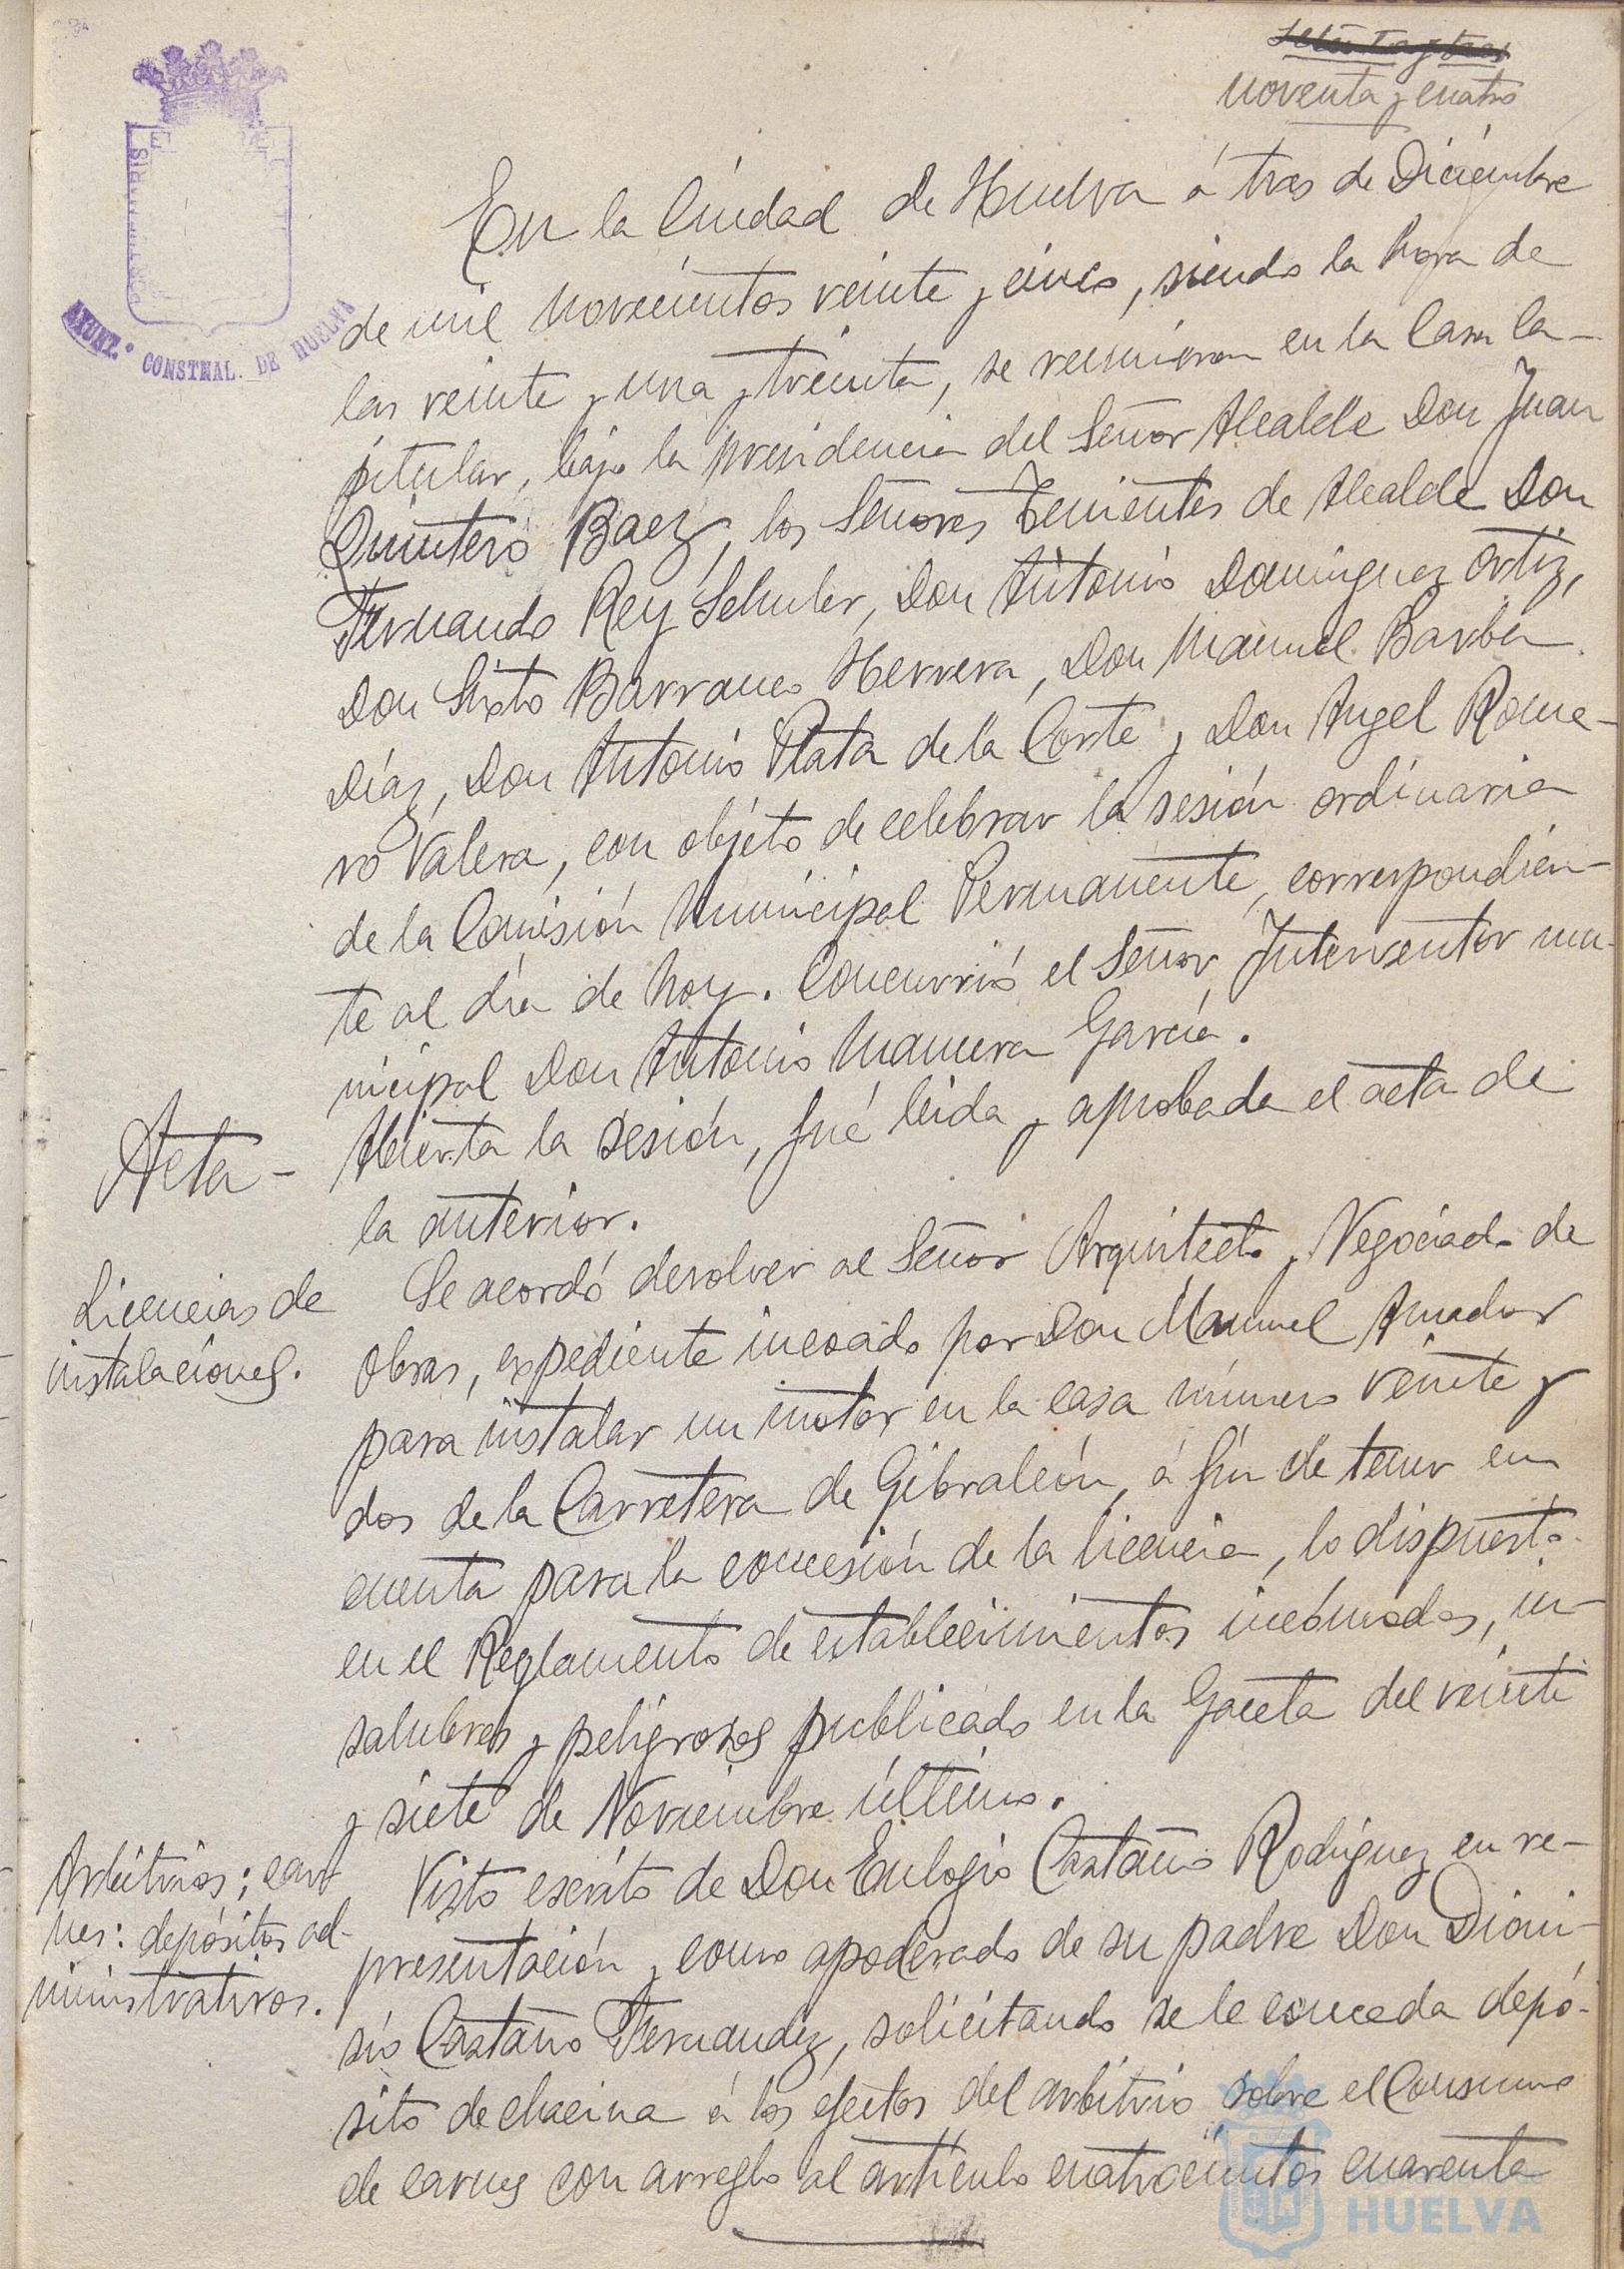 noventa y cuatro
AYUNT.º CONSTNAL. DE HUELVA
En la Ciudad de Huelva á tres de Diciembre
de mil novecientos veinte y cinco, siendo la hora de
las veinte y una y treinta, se reunieron en la Casa Ca-
pitular, bajo la presidencia del Señor Alcalde Don Juan
Quintero Baez, los Señores Tenientes de Alcalde Don
Fernando Rey Schuler, Don Antonio Dominguez Ortiz,
Don Sixto Barranco Herrera, Don Manuel Barba
Díaz, Don Antonio Plata de la Corte y Don Angel Rome-
ro Valera, con objéto de celebrar la sesión ordinaria
de la Comisión Municipal Permanente, correspondien-
te al día de hoy. Concurrió el Señor Interventor mu-
nicipal Don Antonio Mancera García.
Acta - Abierta la sesión, fué leida y aprobada el acta de
la anterior.
Licencias de Se acordó devolver al Señor Arquitecto y Negociado de
instalaciones. Obras, expediente incoado por Don Manuel Amador
para instalar un motor en la casa número veinte y
dos de la Carretera de Gibraleón, á fin de tener en
cuenta para la concesión de la licencia, lo dispuesto
en el Reglamento de establecimientos incómodos, in-
salubres y peligrosos publicado en la Gaceta del veinte
y siete de Noviembre último.
Arbitrios; car Visto escrito de Don Eulogio Castaño Rodriguez en re-
nes: depósitos ad- presentación y como apoderado de su padre Don Dioni-
ministrativos. sio Castaño Fernandez, solicitando se le conceda depó-
sito de chacina á los efectos del arbitrio sobre el Consumo
de carnes con arreglo al artículo cuatrocientos cuarenta
HUELVA